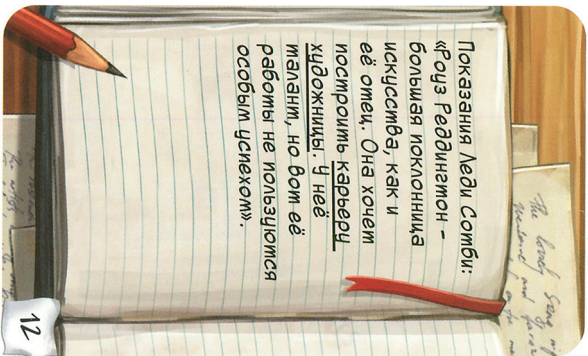 Показания Леди Сотби:
«Роуз Реддингтон -
большая поклонница
искусства, как и
её отец. Она хочет
построить карьеру
художницы. У неё
талант, но вот её
работы не пользуются
особым успехом».
12
The lovely
and